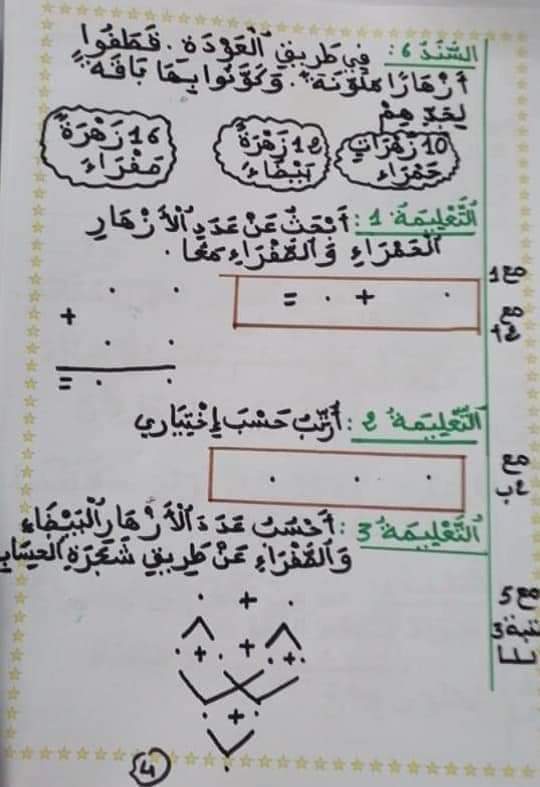 السَّنَدُ 6: فِي طَرِيقِ الْعَوْدَةِ. قَطَفُوا
أَزْهَارًا مُلَوَّنَةً وَكَوَّنُوا بِهَا بَاقَةً
لِجَدِّهِمْ
10 زَهْرَاتٍ حَمْرَاءَ
12 زَهْرَةً بَيْضَاءَ
16 زَهْرَةً صَفْرَاءَ
التَّعْلِيمَةُ 1: أَبْحَثُ عَنْ عَدَدِ الْأَزْهَارِ
الْحَمْرَاءِ وَالصَّفْرَاءِ مَعًا.
مع 1
. + . =
مع 2+
. .
+
. .
= . .
التَّعْلِيمَةُ 2: أُرَتِّبُ حَسْبَ اِخْتِيَارِي
مع 2ب
. . .
التَّعْلِيمَةُ 3: أَحْسُبُ عَدَدَ الْأَزْهَارِ الْبَيْضَاءِ
وَالصَّفْرَاءِ عَنْ طَرِيقِ شَجَرَةِ الحِسَابِ
مع 5
. + .
. + . + . + .
. + .
.
4